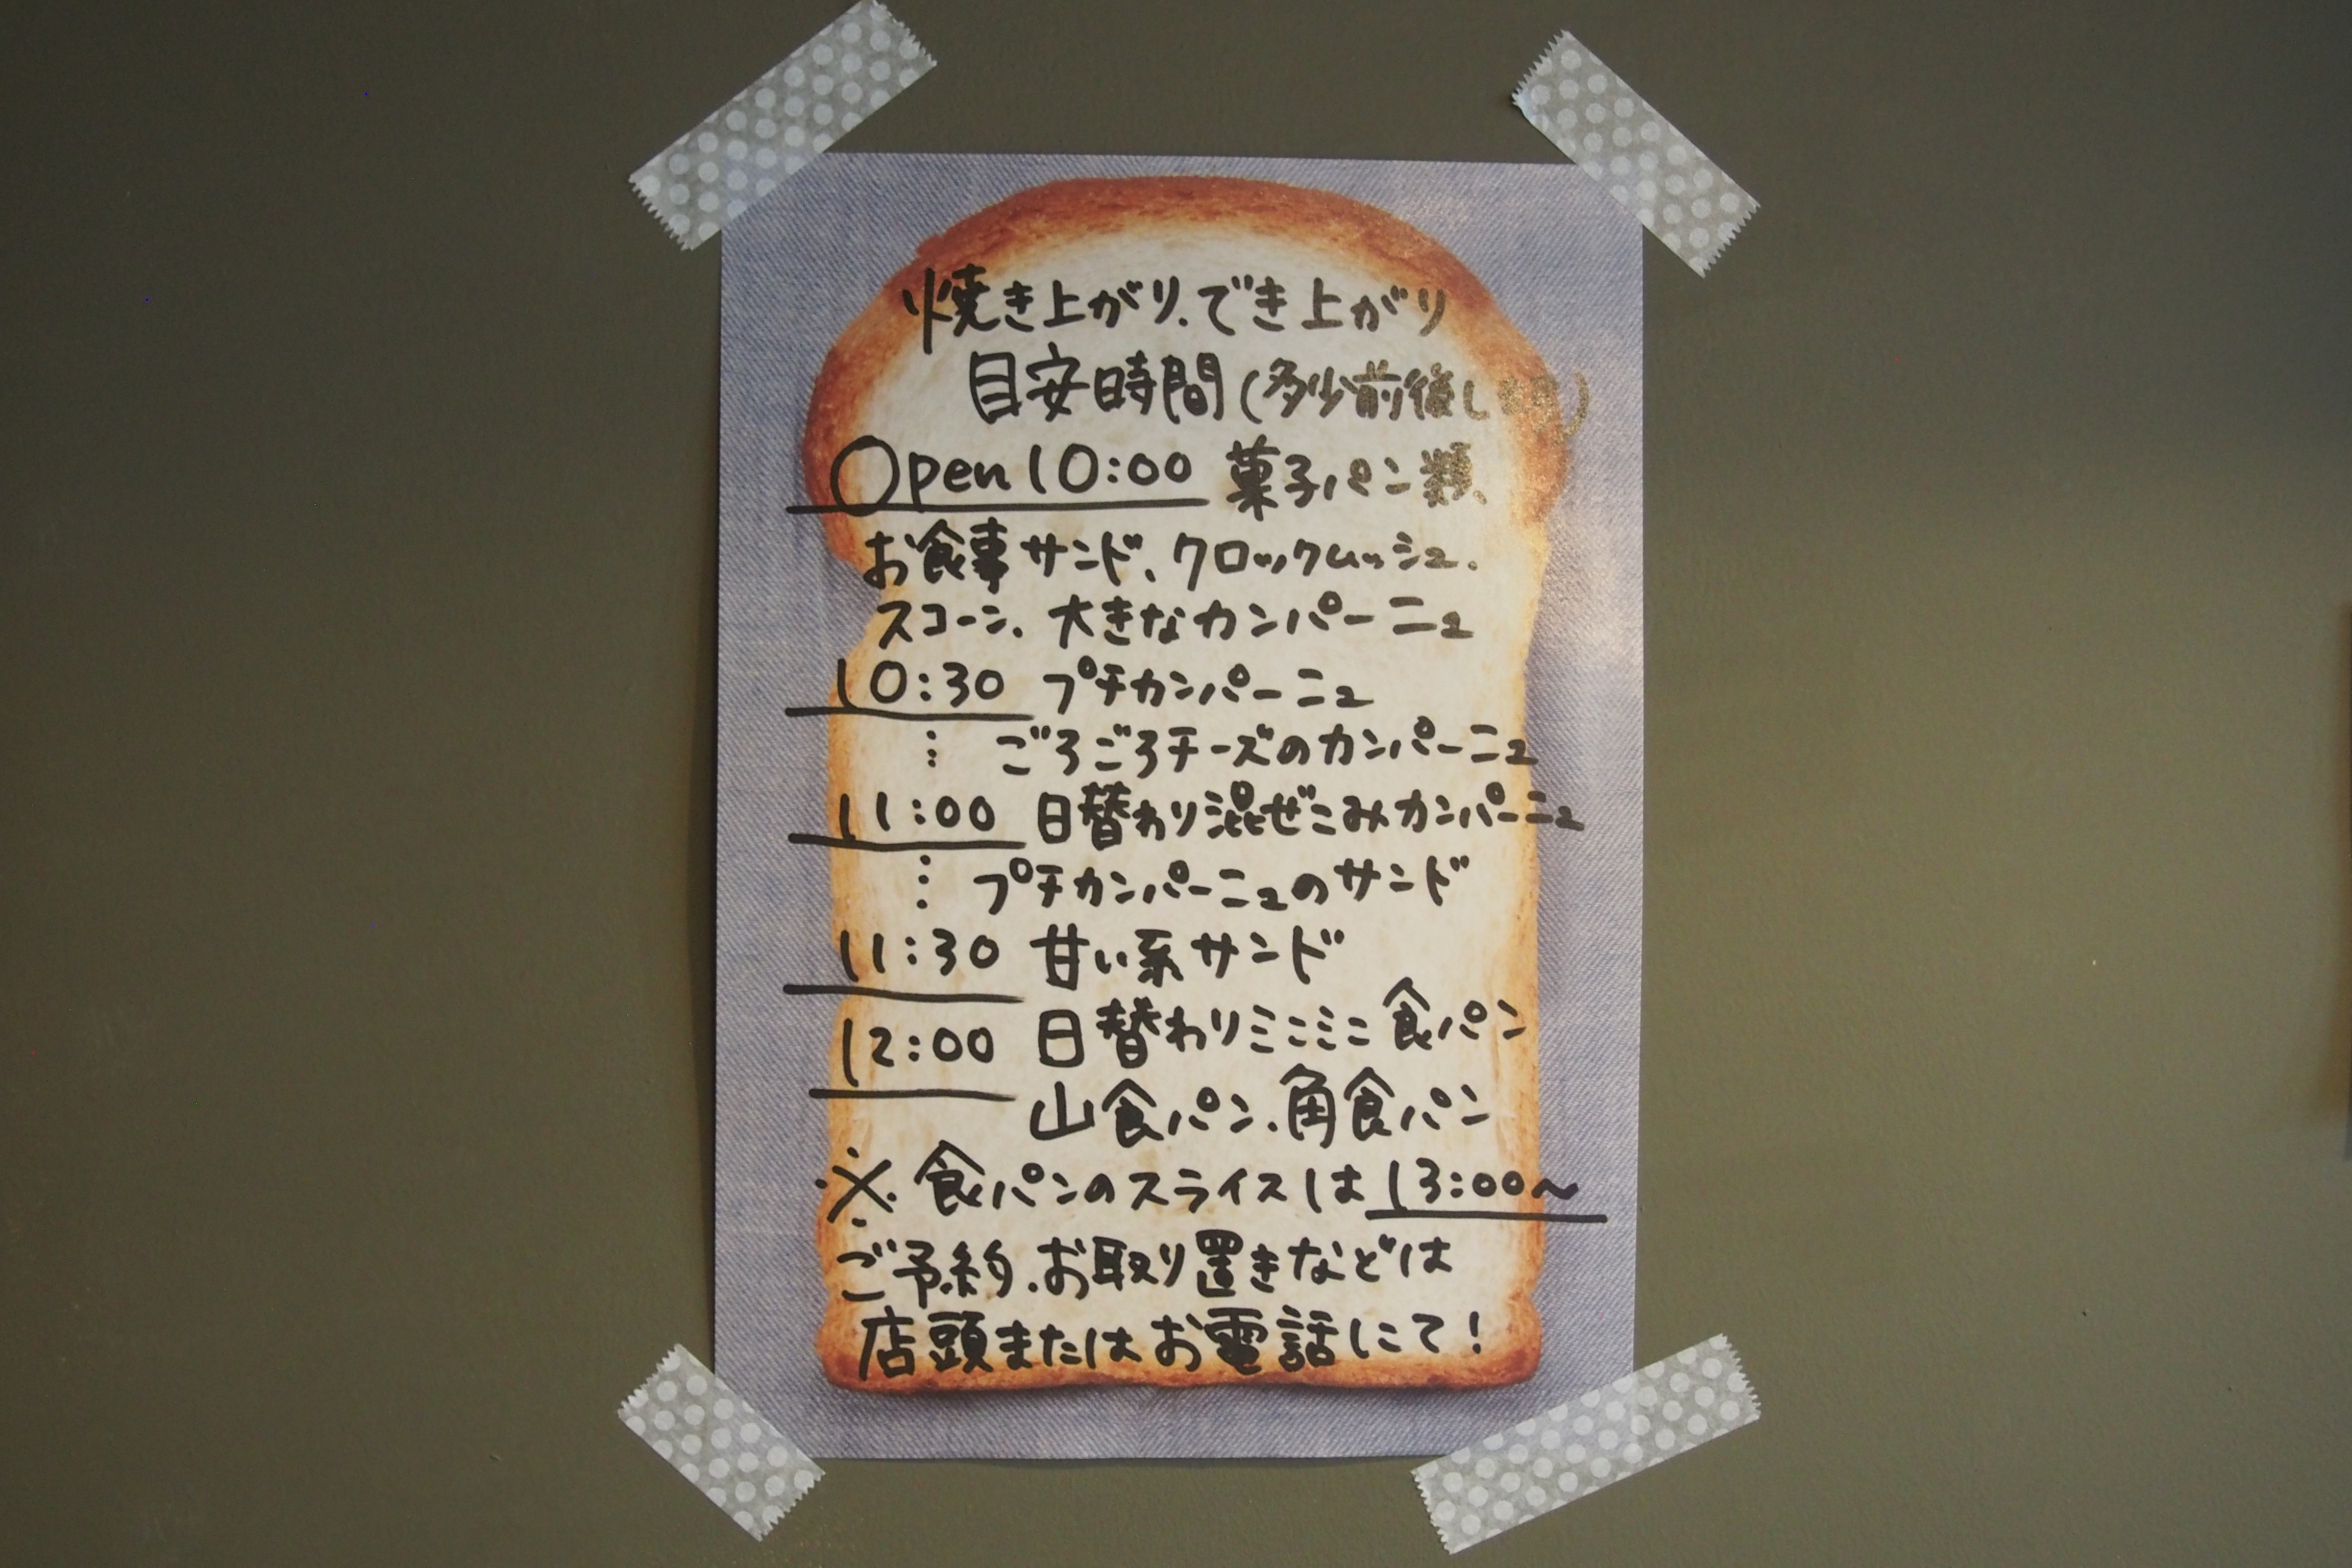 焼き上がり、でき上がり
目安時間(多少前後します)
Open 10:00 菓子パン類、
お食事サンド、クロックムッシュ、
スコーン、大きなカンパーニュ
10:30 プチカンパーニュ
⋮ ごろごろチーズのカンパーニュ
11:00 日替わり混ぜこみカンパーニュ
⋮ プチカンパーニュのサンド
11:30 甘い系サンド
12:00 日替わりミニミニ食パン
山食パン、角食パン
※食パンのスライスは13:00〜
ご予約、お取り置きなどは
店頭またはお電話にて!